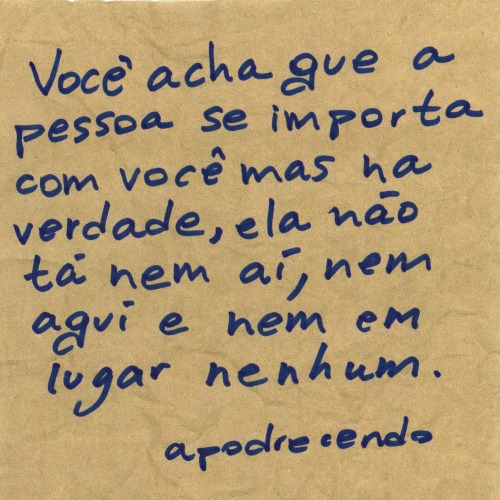 Você acha que a
pessoa se importa
com você mas na
verdade, ela não
tá nem aí, nem
aqui e nem em
lugar nenhum.
apodrecendo